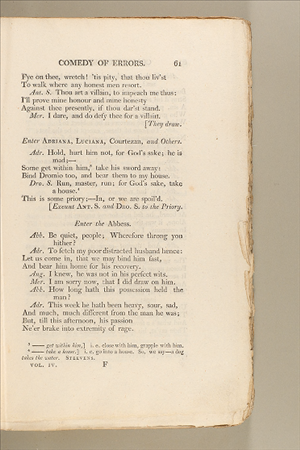 COMEDY OF ERRORS. 61
Fye on thee, wretch! 'tis pity, that thou liv'st
To walk where any honest men resort.
Ant. S. Thou art a villain, to impeach me thus:
I'll prove mine honour and mine honesty
Against thee presently, if thou dar'st stand.
Mer. I dare, and do defy thee for a villain.
[They draw.
Enter ADRIANA, LUCIANA, Courtezan, and Others.
Adr. Hold, hurt him not, for God's sake; he is
mad;—
Some get within him,⁸ take his sword away:
Bind Dromio too, and bear them to my house.
Dro. S. Run, master, run; for God's sake, take
a house.⁹
This is some priory;—In, or we are spoil'd.
[Exeunt ANT. S. and DRO. S. to the Priory.
Enter the Abbess.
Abb. Be quiet, people; Wherefore throng you
hither?
Adr. To fetch my poor distracted husband hence:
Let us come in, that we may bind him fast,
And bear him home for his recovery.
Ang. I knew, he was not in his perfect wits.
Mer. I am sorry now, that I did draw on him.
Abb. How long hath this possession held the
man?
Adr. This week he hath been heavy, sour, sad,
And much, much different from the man he was;
But, till this afternoon, his passion
Ne'er brake into extremity of rage.
⁸ —— get within him,] i. e. close with him, grapple with him.
⁹ —— take a house.] i. e. go into a house. So, we say—a dog
takes the water. STEEVENS.
VOL. IV. F